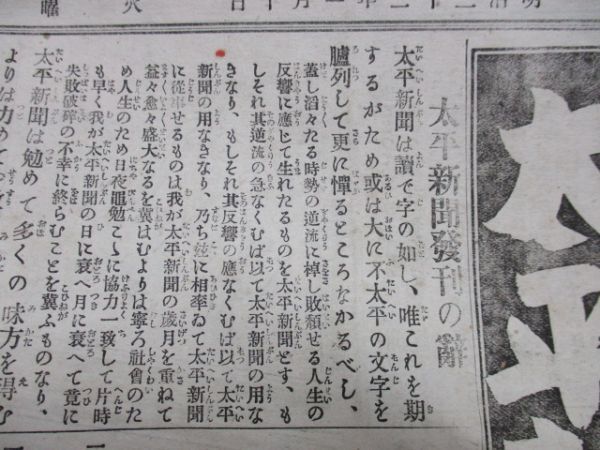 太平新聞發刊の辭
太平新聞は讀で字の如し、唯これを期
するがため或は大に不太平の文字を
臚列して更に憚るところなかるべし、
蓋し滔々たる時勢の逆流に棹し敗頽せる人生の
反響に應じて生れたるものを太平新聞とす、も
しそれ其逆流の急なくむば以て太平新聞の用な
きなり、もしそれ其反響の應なくむば以て太平
新聞の用なきなり、乃ち玆に相率ゐて太平新聞
に從事せるものは我が太平新聞の歳月を重ねて
益々愈々盛大なるを冀はむよりは寧ろ社會のた
め人生のため日夜黽勉こゝに協力一致して片時
も早く我が太平新聞の日に衰へ月に衰へて竟に
失敗破碎の不幸に終らむことを冀ふものなり、
太平新聞は勉めて多くの味方を得む
よりは力めて